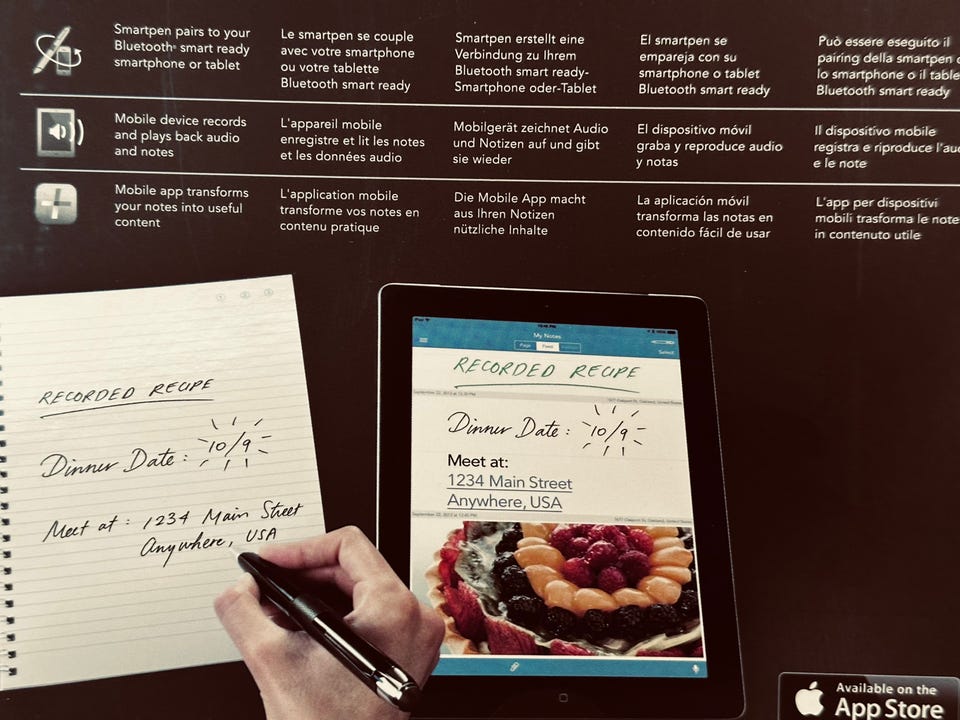 Smartpen pairs to your
Bluetooth® smart ready
smartphone or tablet
Le smartpen se couple
avec votre smartphone
ou votre tablette
Bluetooth smart ready
Smartpen erstellt eine
Verbindung zu Ihrem
Bluetooth smart ready-
Smartphone oder-Tablet
El smartpen se
empareja con su
smartphone o tablet
Bluetooth smart ready
Può essere eseguito il
pairing della smartpen
lo smartphone o il table
Bluetooth smart ready
Mobile device records
and plays back audio
and notes
L'appareil mobile
enregistre et lit les notes
et les données audio
Mobilgerät zeichnet Audio
und Notizen auf und gibt
sie wieder
El dispositivo móvil
graba y reproduce audio
y notas
Il dispositivo mobile
registra e riproduce l'au
e le note
Mobile app transforms
your notes into useful
content
L'application mobile
transforme vos notes en
contenu pratique
Die Mobile App macht
aus Ihren Notizen
nützliche Inhalte
La aplicación móvil
transforma las notas en
contenido fácil de usar
L'app per dispositivi
mobili trasforma le note
in contenuto utile
1 2 3
RECORDED RECIPE
Dinner Date: 10/9
Meet at: 1234 Main Street
Anywhere, USA
My Notes
Page Feed
Select
RECORDED RECIPE
Dinner Date: 10/9
Meet at:
1234 Main Street
Anywhere, USA
Available on the
App Store